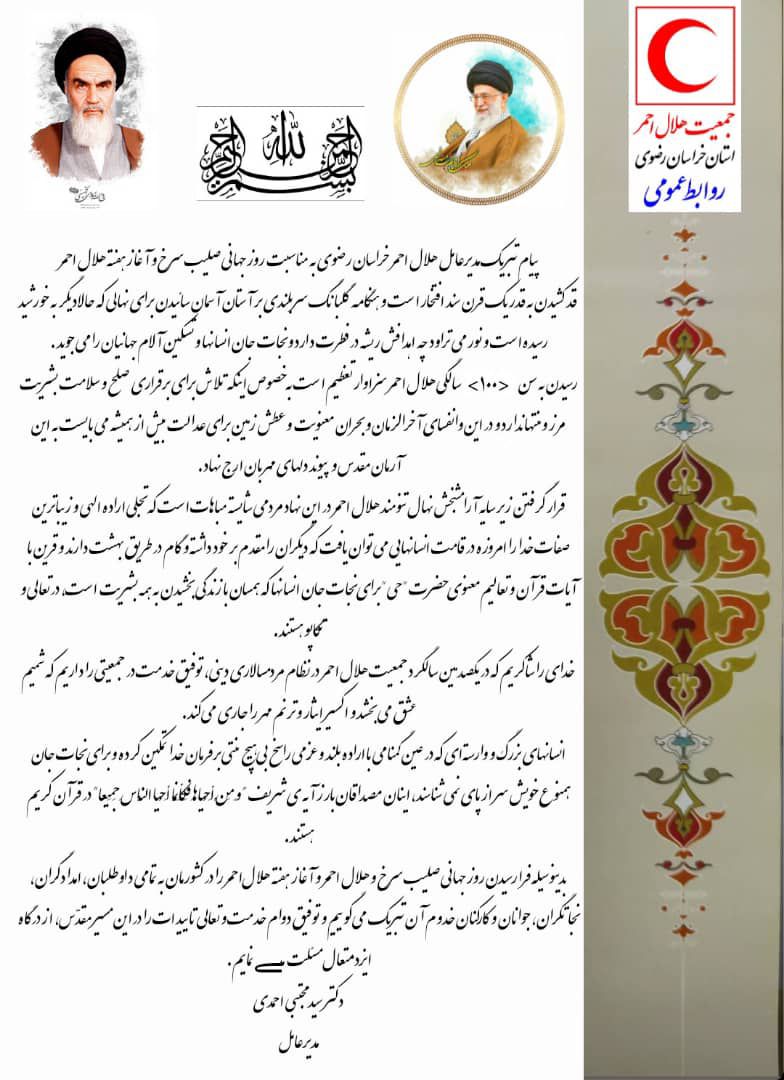 بسم الله الرحمن الرحیم
جمعیت هلال احمر
استان خراسان رضوی
روابط عمومی
پیام تبریک مدیرعامل هلال احمر خراسان رضوی به مناسبت روز جهانی صلیب سرخ و آغاز هفته هلال احمر
قد کشیدن به قد یک قرن سند افتخار است و هنگامه گلبانگ سربلندی بر آستان آسمان سائیدن برای نهالی که حالا دیگر به خورشید
رسیده است و نور می تراود چه اهدافش ریشه در فطرت دارد و نجات جان انسانها و تسکین آلام جهانیان را می جوید .
رسیدن به سن <۱۰۰> سالگی هلال احمر سزاوار تعظیم است به خصوص اینکه تلاش برای برقراری صلح و سلامت بشریت
مرز و منتها ندارد و در این وانفسای آخرالزمان و بحران معنویت و عطش زمین برای عدالت بیش از همیشه می بایست به این
آرمان مقدس و پیوند دلهای مهربان ارج نهاد.
قرار گرفتن زیر سایه آرامشبخش نهال تنومند هلال احمر در این نهاد مردمی شایسته مباهات است که تجلی اراده الهی و زیباترین
صفات خدا را امروزه در قامت انسانهایی می توان یافت که دیگران را مقدم بر خود داشته و گام در طریق بهشت دارند و قرین با
آیات قرآن و تعالیم معنوی حضرت "حی" برای نجات جان انسانها که همسان با زندگی بخشیدن به همه بشریت است، در تعالی و
تکاپو هستند.
خدای را شاکریم که در یکصدمین سالگرد جمعیت هلال احمر در نظام مردمسالاری دینی، توفیق خدمت در جمعیتی را داریم که شمیم
عشق می بخشد و اکسیر ایثار و ترنم مهر را جاری می کند.
انسانهای بزرگ و وارسته ای که در عین گمنامی با اراده بلند و عزمی راسخ بی هیچ منتی بر فرمان خدا تمکین کرده و برای نجات جان
همنوع خویش سر از پای نمی شناسند، اینان مصداقان بارز آیه ی شریف "و من أحیاها فکأنما أحیا الناس جمیعا" در قرآن کریم
هستند.
بدینوسیله فرارسیدن روز جهانی صلیب سرخ و هلال احمر و آغاز هفته هلال احمر را در کشورمان به تمامی داوطلبان، امدادگران،
نجاتگران، جوانان و کارکنان خدوم آن تبریک می گوییم و توفیق دوام خدمت و تعالی تاییدات را در این مسیر مقدّس، از درگاه
ایزد متعال مسئلت می نمایم .
دکتر سید مجتبی احمدی
مدیرعامل